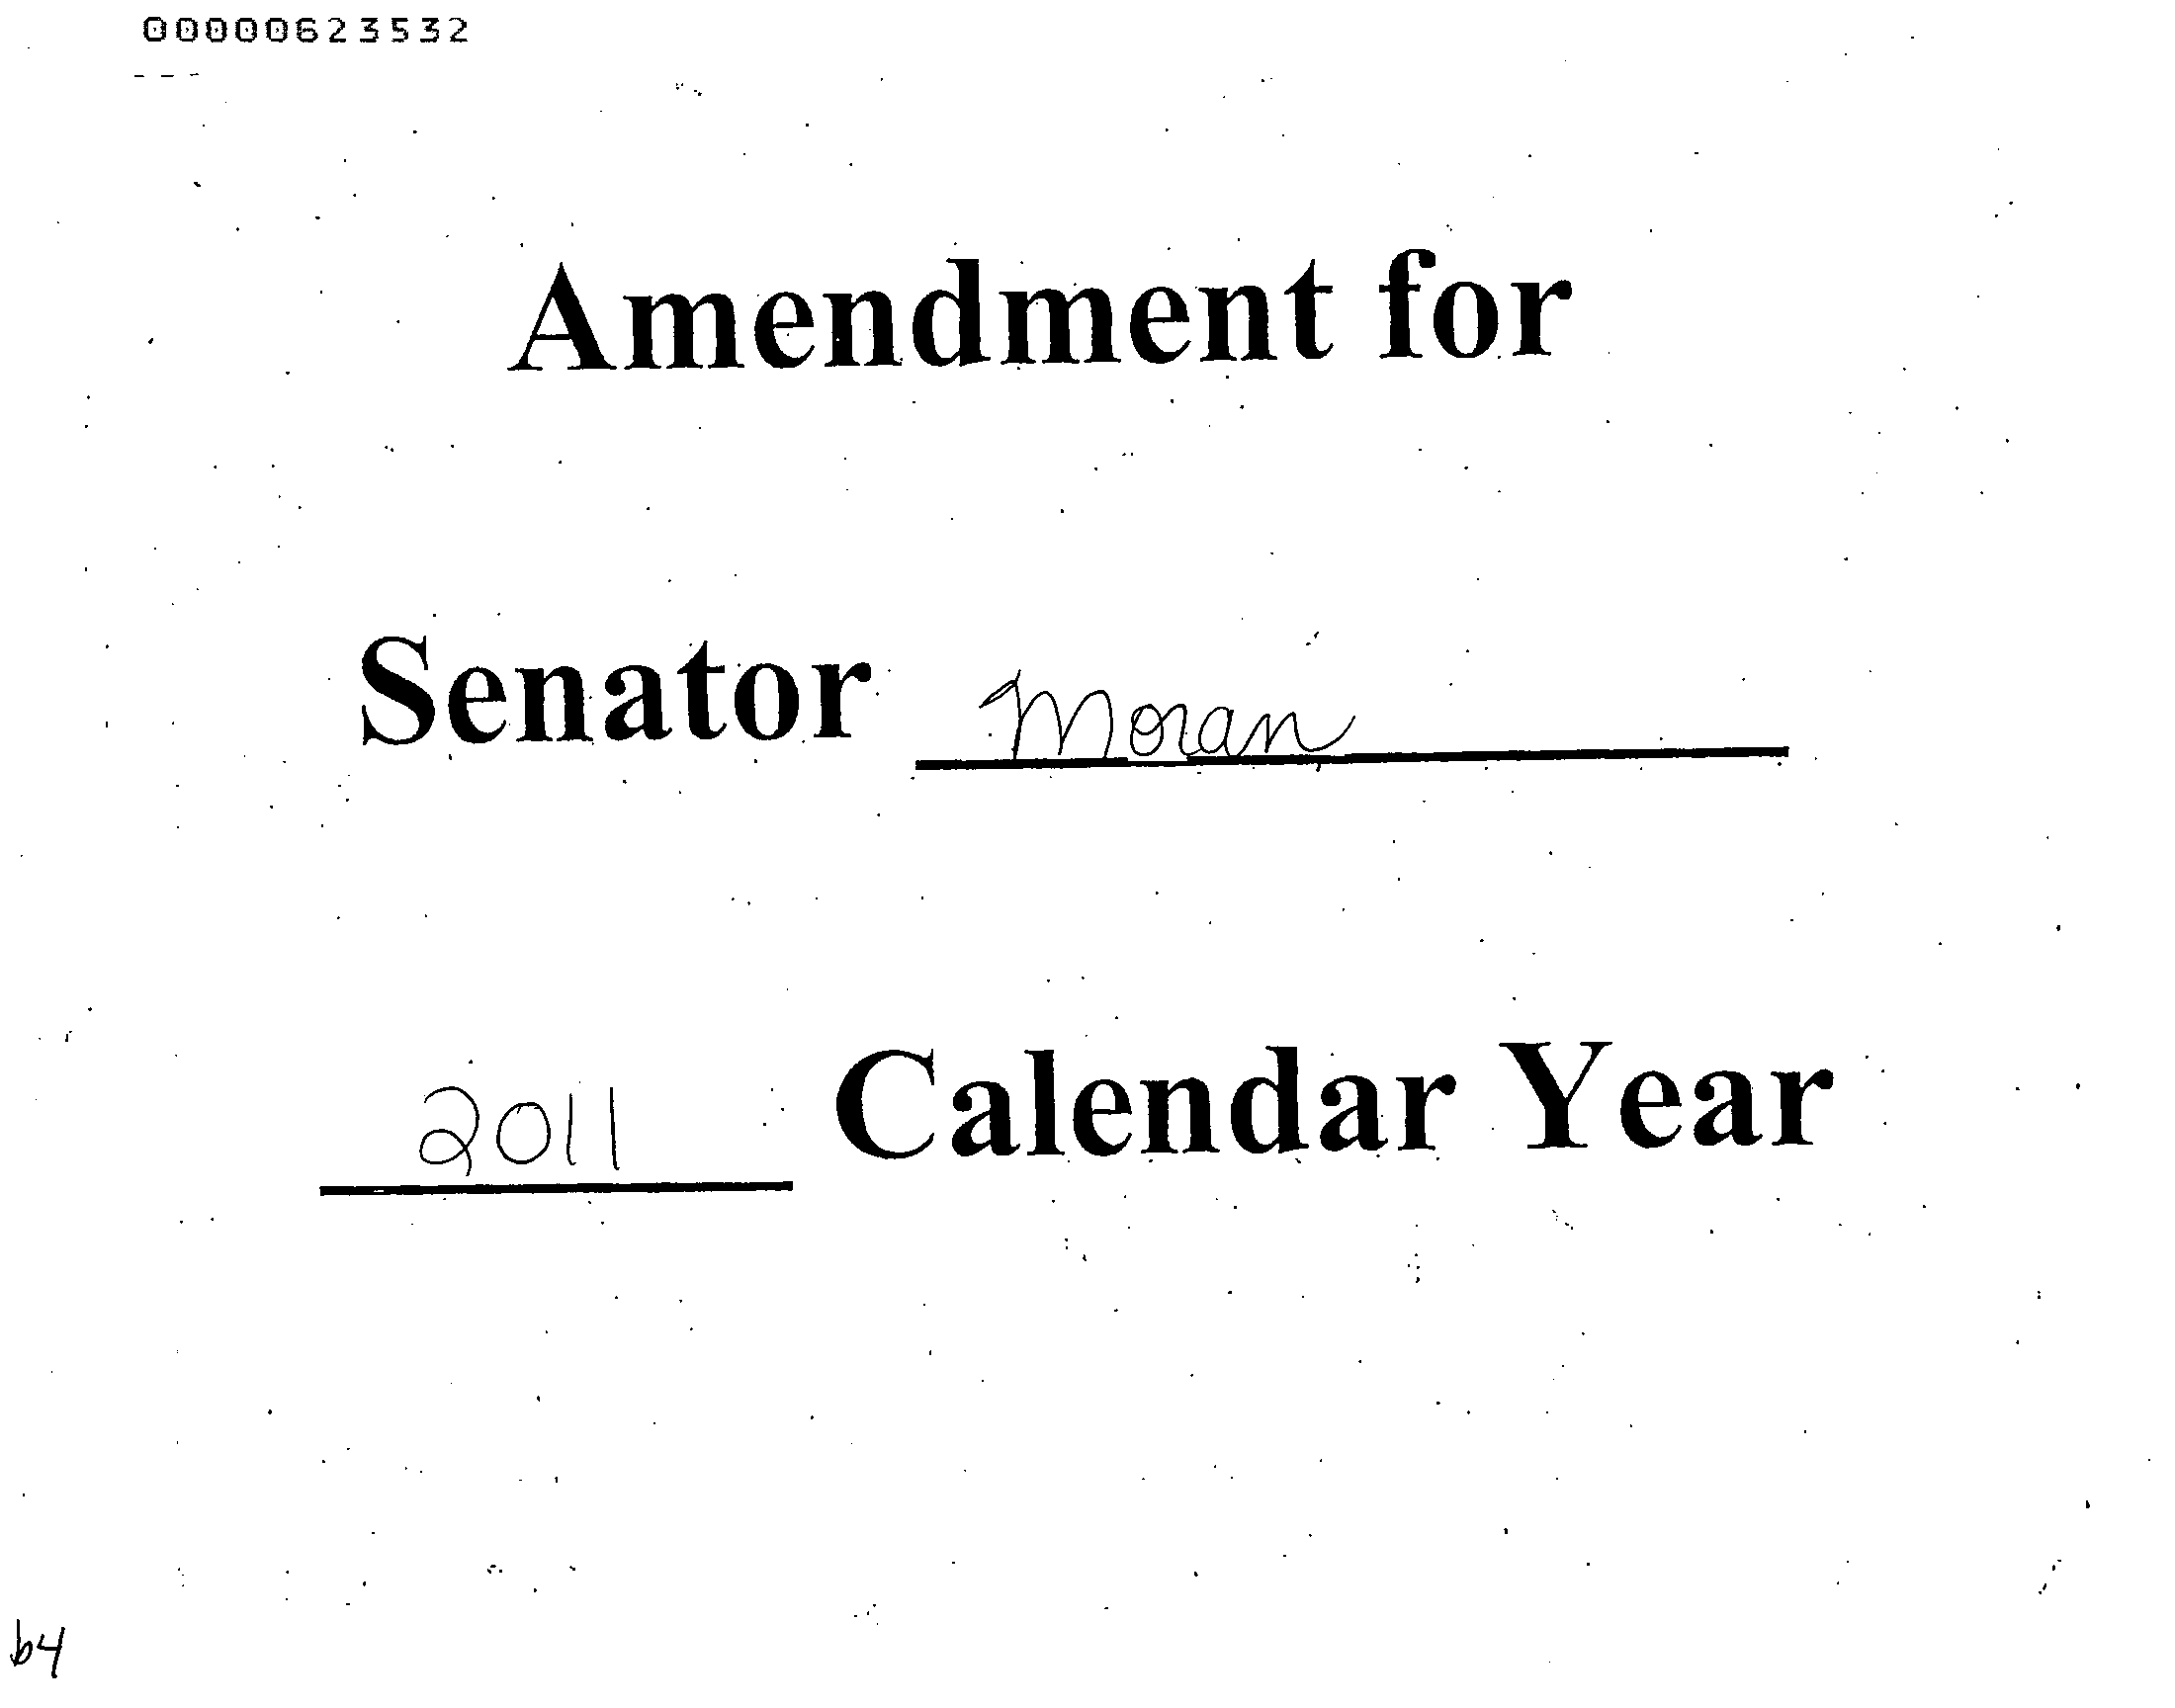 00000623532
Amendment for
Senator Moran
2011 Calendar Year
b4